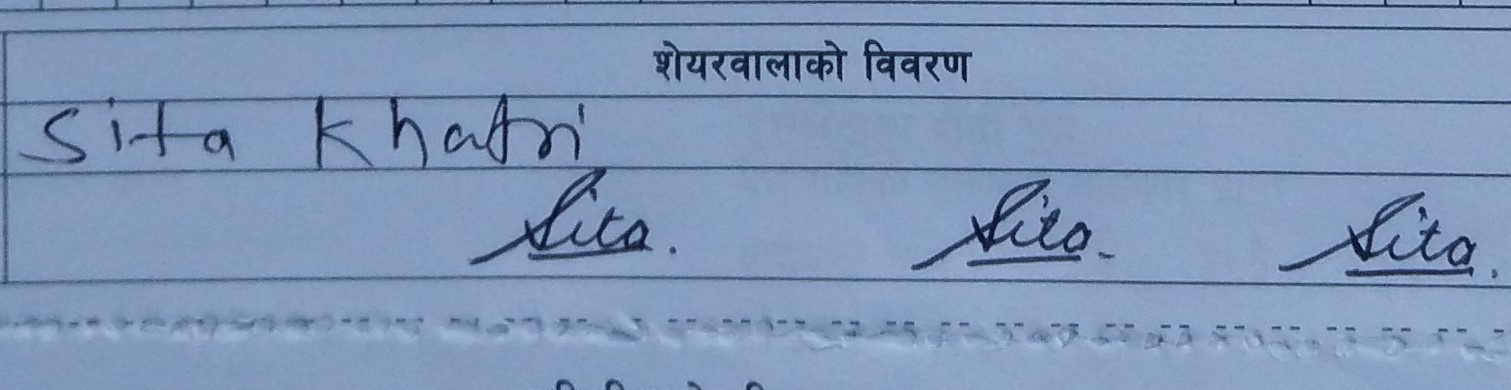 शेयरवालाको विवरण
Sita Khatri
Sita. Sita. Sita.